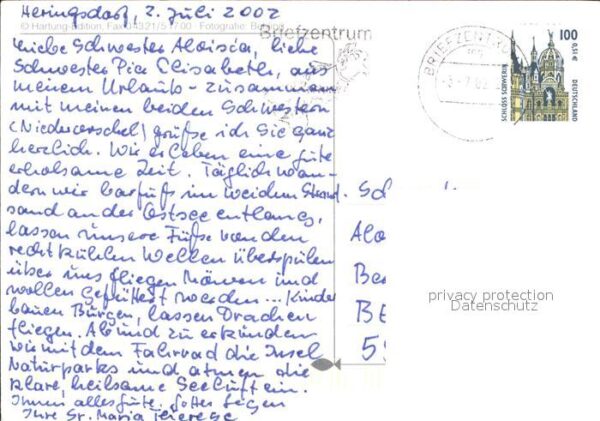 Heringsdorf, 2. Juli 2002
© Hartung-Edition, Fax 04321/5 7700 Fotografie:
Briefzentrum
Liebe Schwester Aloisia, liebe
Schwester Pia Elisabeth, aus
meinem Urlaub - zusammen
mit meinen beiden Schwestern
(Niederverschel) grüße ich Sie ganz
herzlich. Wir erleben eine gute
erholsame Zeit. Täglich wan-
dern wir barfuß im weichen Strand-
sand an der Ostsee entlang,
lassen unsere Füße von den
recht kühlen Wellen überspülen
über uns fliegen Möwen und
wollen gefüttert werden ... Kinder
bauen Burgen, lassen Drachen
fliegen. Ab und zu erkunden
wir mit dem Fahrrad die Insel
Naturparks und atmen die
klare, heilsame Seeluft ein.
Ihnen alles Gute. Gottes Segen
Ihre Sr. Maria Therese
BRIEFZENTRUM
100
0,51 €
SCHLOSS SCHWERIN
DEUTSCHLAND
Alo
Be
BE
5
privacy protection
Datenschutz